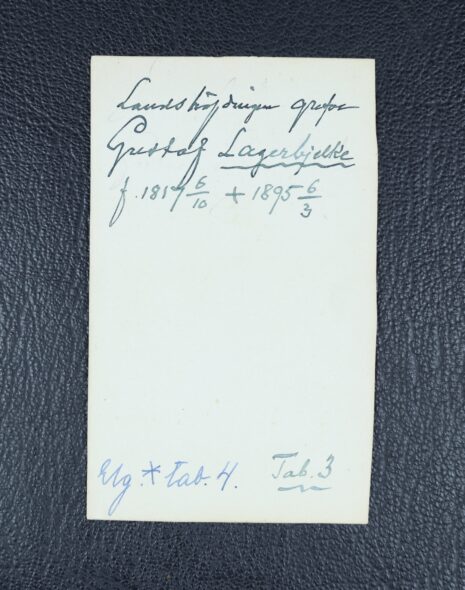 Landshöfdingen grefve
Gustaf Lagerbjelke
f. 1817 6/10 + 1895 6/3
Elg. * tab. 4. Tab. 3